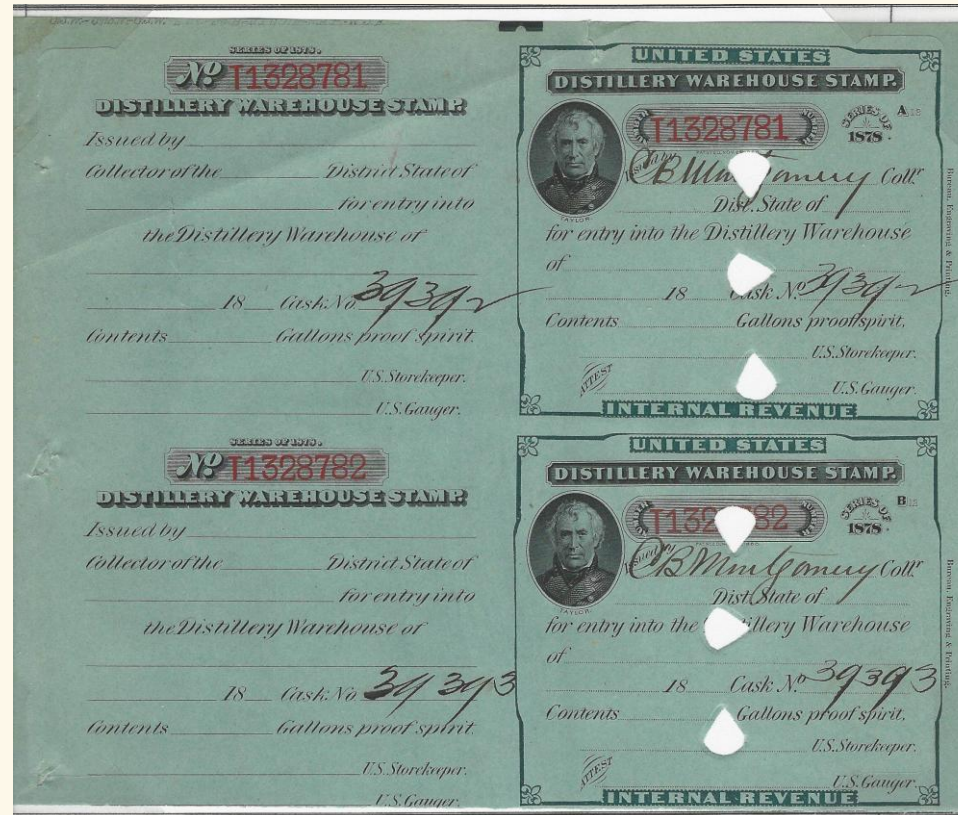 SERIES OF 1878.
No T1328781
DISTILLERY WAREHOUSE STAMP.
Issued by
Collector of the District State of
for entry into
the Distillery Warehouse of
18 Cask No 39392
Contents Gallons proof spirit.
U.S. Storekeeper.
U.S. Gauger.
UNITED STATES
DISTILLERY WAREHOUSE STAMP.
T1328781
SERIES OF
1878.
A
TAYLOR.
Issued by CB Montgomery Collr
Dist. State of
for entry into the Distillery Warehouse
of
18 Cask No. 39392
Contents Gallons proof spirit.
U.S. Storekeeper.
ATTEST
U.S. Gauger.
INTERNAL REVENUE
Bureau, Engraving & Printing.
SERIES OF 1878.
No T1328782
DISTILLERY WAREHOUSE STAMP.
Issued by
Collector of the District State of
for entry into
the Distillery Warehouse of
18 Cask No 39393
Contents Gallons proof spirit.
U.S. Storekeeper.
U.S. Gauger.
UNITED STATES
DISTILLERY WAREHOUSE STAMP.
T132 82
SERIES OF
1878.
B
TAYLOR.
Issued by CB Montgomery Collr
Dist. State of
for entry into the illery Warehouse
of
18 Cask No. 39393
Contents Gallons proof spirit.
U.S. Storekeeper.
ATTEST
U.S. Gauger.
INTERNAL REVENUE
Bureau, Engraving & Printing.